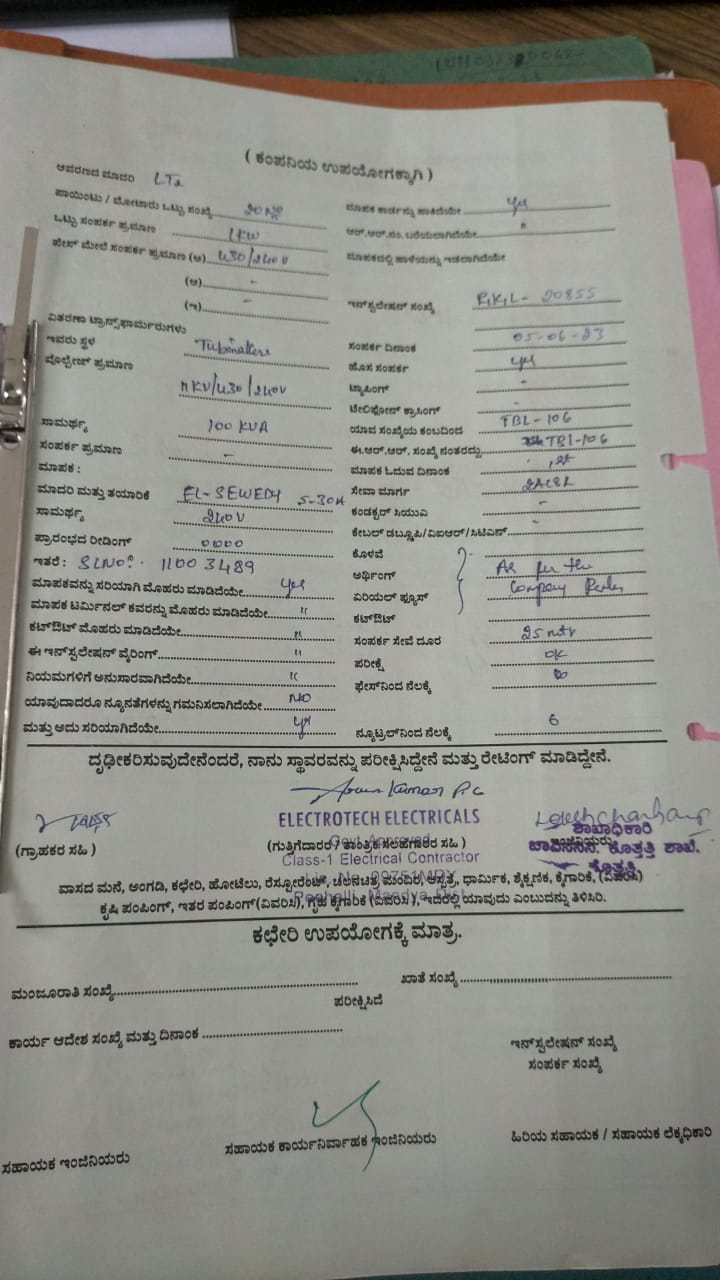 ( ಕಂಪನಿಯ ಉಪಯೋಗಕ್ಕಾಗಿ )
ಆವರಣದ ಮಾದರಿ LT2
ಪಾಯಿಂಟು / ಮೋಟಾರು ಒಟ್ಟು ಸಂಖ್ಯೆ
ಒಟ್ಟು ಸಂಪರ್ಕ ಪ್ರಮಾಣ 1KW
ಫೇಸ್ ಮೇಲೆ ಸಂಪರ್ಕ ಪ್ರಮಾಣ (ಅ) 430/240V
(ಆ) -
(ಇ) -
ವಿತರಣಾ ಟ್ರಾನ್ಸ್‌ಫಾರ್ಮರುಗಳು
ಇವರು ಸ್ಥಳ Tubinakere
ವೋಲ್ಟೇಜ್ ಪ್ರಮಾಣ 11KV/430/240V
ಸಾಮರ್ಥ್ಯ 100 KVA
ಸಂಪರ್ಕ ಪ್ರಮಾಣ -
ಮಾಪಕ :
ಮಾದರಿ ಮತ್ತು ತಯಾರಿಕೆ EL-SEWEDY 5-30A
ಸಾಮರ್ಥ್ಯ 240V
ಪ್ರಾರಂಭದ ರೀಡಿಂಗ್ 0000
ಇತರೆ : SLNO: 11003489
ಮಾಪಕವನ್ನು ಸರಿಯಾಗಿ ಮೊಹರು ಮಾಡಿದೆಯೇ yes
ಮಾಪಕ ಟರ್ಮಿನಲ್ ಕವರನ್ನು ಮೊಹರು ಮಾಡಿದೆಯೇ "
ಕಟ್‌ಔಟ್ ಮೊಹರು ಮಾಡಿದೆಯೇ "
ಈ ಇನ್‌ಸ್ಟಲೇಷನ್ ವೈರಿಂಗ್ "
ನಿಯಮಗಳಿಗೆ ಅನುಸಾರವಾಗಿದೆಯೇ "
ಯಾವುದಾದರೂ ನ್ಯೂನತೆಗಳನ್ನು ಗಮನಿಸಲಾಗಿದೆಯೇ NO
ಮತ್ತು ಅದು ಸರಿಯಾಗಿದೆಯೇ yes
ಮಾಪಕ ಕಾರ್ಡನ್ನು ಹಾಕಿದೆಯೇ yes
ಆರ್.ಆರ್.ನಂ. ಬರೆಯಲಾಗಿದೆಯೇ "
ಮಾಪಕದಲ್ಲಿ ಹಾಳೆಯನ್ನು ಇಡಲಾಗಿದೆಯೇ
ಇನ್‌ಸ್ಟಲೇಷನ್ ಸಂಖ್ಯೆ RKL- 20855
ಸಂಪರ್ಕ ದಿನಾಂಕ 05-06-23
ಹೊಸ ಸಂಪರ್ಕ yes
ಟ್ಯಾಪಿಂಗ್ -
ಟೆಲಿಫೋನ್ ಕ್ರಾಸಿಂಗ್ -
ಯಾವ ಸಂಖ್ಯೆಯ ಕಂಬದಿಂದ TBL-106
ಈ.ಆರ್.ಆರ್. ಸಂಖ್ಯೆ ನಂತರದ್ದು TBL-106
ಮಾಪಕ ಓದುವ ದಿನಾಂಕ 1st
ಸೇವಾ ಮಾರ್ಗ
ಕಂಡಕ್ಟರ್ ಸಿಯುವಿ -
ಕೇಬಲ್ ಡಬ್ಲ್ಯೂಪಿ/ವಿಐಆರ್/ಸಿಟಿಎನ್ -
ಕೊಳವೆ
ಅರ್ಥಿಂಗ್ As per the
ಏರಿಯಲ್ ಫ್ಯೂಸ್ Company Rules
ಕಟ್‌ಔಟ್
ಸಂಪರ್ಕ ಸೇವೆ ದೂರ 25 mtr
ಪರೀಕ್ಷೆ OK
ಫೇಸ್‌ನಿಂದ ನೆಲಕ್ಕೆ
ನ್ಯೂಟ್ರಲ್‌ನಿಂದ ನೆಲಕ್ಕೆ 6
ದೃಢೀಕರಿಸುವುದೇನೆಂದರೆ, ನಾನು ಸ್ಥಾವರವನ್ನು ಪರೀಕ್ಷಿಸಿದ್ದೇನೆ ಮತ್ತು ರೇಟಿಂಗ್ ಮಾಡಿದ್ದೇನೆ.
(ಗ್ರಾಹಕರ ಸಹಿ )
Arun Kumar P.C
ELECTROTECH ELECTRICALS
Govt Approved
(ಗುತ್ತಿಗೆದಾರರ / ತಾಂತ್ರಿಕ ಸಲಹಾಗಾರರ ಸಹಿ )
Class-1 Electrical Contractor
ಶಾಖಾಧಿಕಾರಿ
ಇಂಜಿನಿಯರು
ಚಾವಿಸನಿನಿ. ಕೊತ್ತತ್ತಿ ಶಾಖೆ.
ಕೊತ್ತತ್ತಿ
ವಾಸದ ಮನೆ, ಅಂಗಡಿ, ಕಛೇರಿ, ಹೋಟೆಲು, ರೆಸ್ಟೋರೆಂಟ್, ಚಲನಚಿತ್ರ ಮಂದಿರ, ಆಸ್ಪತ್ರೆ, ಧಾರ್ಮಿಕ, ಶೈಕ್ಷಣಿಕ, ಕೈಗಾರಿಕೆ, (ವಿವರಿಸಿ)
ಕೃಷಿ ಪಂಪಿಂಗ್, ಇತರ ಪಂಪಿಂಗ್(ವಿವರಿಸಿ), ಗೃಹ ಕೈಗಾರಿಕೆ (ವಿವರಿಸಿ ), ಇದರಲ್ಲಿ ಯಾವುದು ಎಂಬುದನ್ನು ತಿಳಿಸಿರಿ.
ಕಛೇರಿ ಉಪಯೋಗಕ್ಕೆ ಮಾತ್ರ.
ಮಂಜೂರಾತಿ ಸಂಖ್ಯೆ ಖಾತೆ ಸಂಖ್ಯೆ
ಪರೀಕ್ಷಿಸಿದೆ
ಕಾರ್ಯ ಆದೇಶ ಸಂಖ್ಯೆ ಮತ್ತು ದಿನಾಂಕ
ಇನ್‌ಸ್ಟಲೇಷನ್ ಸಂಖ್ಯೆ
ಸಂಪರ್ಕ ಸಂಖ್ಯೆ
ಸಹಾಯಕ ಇಂಜಿನಿಯರು ಸಹಾಯಕ ಕಾರ್ಯನಿರ್ವಾಹಕ ಇಂಜಿನಿಯರು ಹಿರಿಯ ಸಹಾಯಕ / ಸಹಾಯಕ ಲೆಕ್ಕಧಿಕಾರಿ